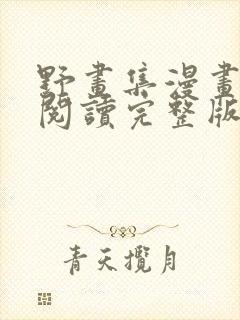 野畫集漫畫
閱讀完整版
青天攬月